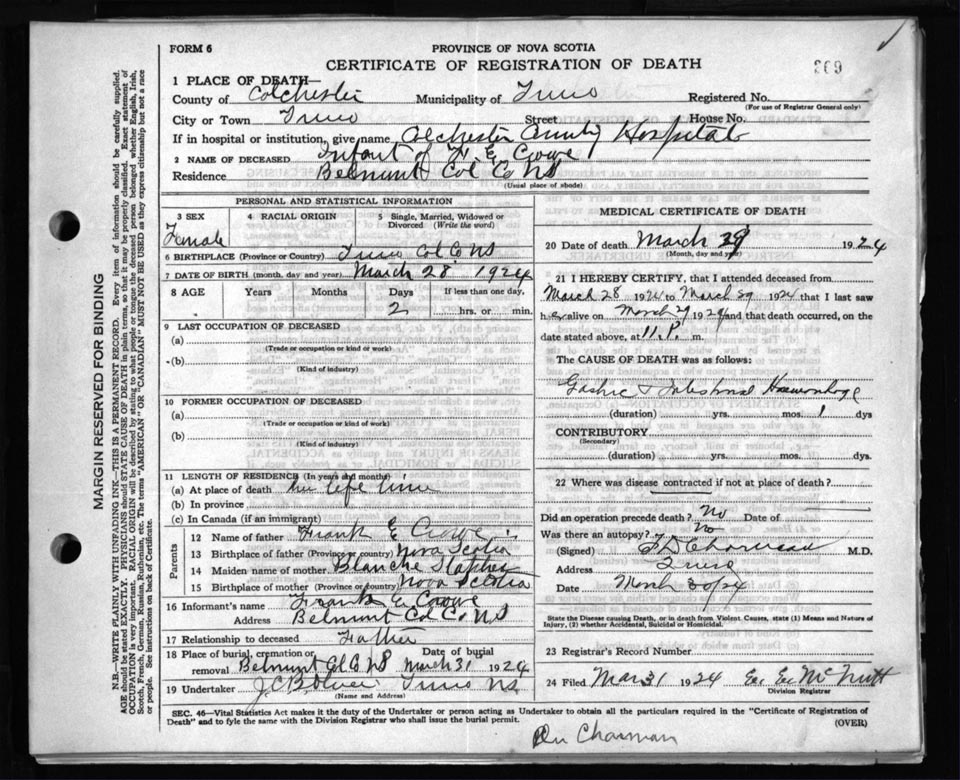 FORM 6
PROVINCE OF NOVA SCOTIA
CERTIFICATE OF REGISTRATION OF DEATH
369
1 PLACE OF DEATH—
County of Colchester Municipality of Truro Registered No.
(For use of Registrar General only)
City or Town Truro Street House No.
If in hospital or institution, give name Colchester County Hospital
2 NAME OF DECEASED Infant of F. E. Crowe
Residence Belmont Col Co NS
(Usual place of abode)
PERSONAL AND STATISTICAL INFORMATION
3 SEX
Female
4 RACIAL ORIGIN
5 Single, Married, Widowed or Divorced (Write the word)
6 BIRTHPLACE (Province or Country) Truro Col Co NS
7 DATE OF BIRTH (month, day and year) March 28 1924
8 AGE Years Months Days If less than one day,
2 hrs. or min.
9 LAST OCCUPATION OF DECEASED
(a)
(Trade or occupation or kind of work)
(b)
(Kind of industry)
10 FORMER OCCUPATION OF DECEASED
(a)
(Trade or occupation or kind of work)
(b)
(Kind of industry)
11 LENGTH OF RESIDENCE (In years and months)
(a) At place of death life time
(b) In province
(c) In Canada (if an immigrant)
Parents
12 Name of father Frank E Crowe
13 Birthplace of father (Province or country) Nova Scotia
14 Maiden name of mother Blanche
15 Birthplace of mother (Province or country) Nova Scotia
16 Informant's name Frank E Crowe
Address Belmont Col Co NS
17 Relationship to deceased Father
18 Place of burial, cremation or removal Belmont Col Co NS Date of burial March 31 1924
19 Undertaker Truro NS
(Name and Address)
MEDICAL CERTIFICATE OF DEATH
20 Date of death March 29 1924
(Month, day and year)
21 I HEREBY CERTIFY, that I attended deceased from
March 28 1924 to March 29 1924 that I last saw
her alive on March 29 1924 and that death occurred, on the
date stated above, at 11 P. m.
The CAUSE OF DEATH was as follows:
Gastric & Intestinal Haemorrhage
(duration) yrs. mos. 1 dys
CONTRIBUTORY
(Secondary)
(duration) yrs. mos. dys.
22 Where was disease contracted if not at place of death?
Did an operation precede death? No Date of
Was there an autopsy? No
(Signed) M.D.
Address Truro
Date March 30/24
State the Disease causing Death, or in death from Violent Causes, state (1) Means and Nature of Injury, (2) whether Accidental, Suicidal or Homicidal.
23 Registrar's Record Number
24 Filed Mar 31 1924 E. E. McNutt
Division Registrar
SEC. 46—Vital Statistics Act makes it the duty of the Undertaker or person acting as Undertaker to obtain all the particulars required in the "Certificate of Registration of
Death" and to fyle the same with the Division Registrar who shall issue the burial permit.
(OVER)
Dr Charman
MARGIN RESERVED FOR BINDING
N.B.—WRITE PLAINLY WITH UNFADING INK—THIS IS A PERMANENT RECORD. Every item of information should be carefully supplied.
AGE should be stated EXACTLY. PHYSICIANS should STATE CAUSE OF DEATH in plain terms, so that it may be properly classified. Exact statement of
OCCUPATION is very important. RACIAL ORIGIN will be described by stating to what people or tongue the deceased person belonged whether English, Irish,
Scotch, French, German, Russian, Ruthenian, etc. The terms "AMERICAN" OR "CANADIAN" MUST NOT BE USED as they express citizenship but not a race
or people. See instructions on back of Certificate.